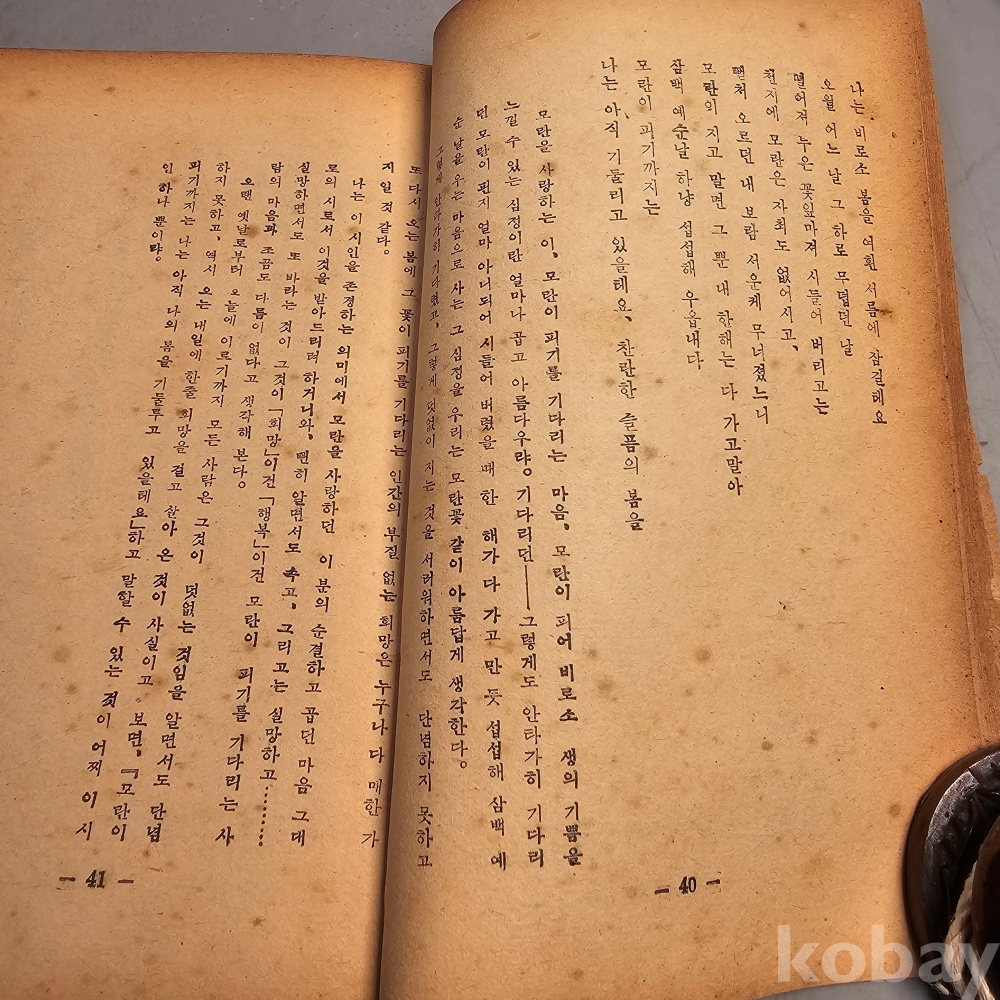 나는 비로소 봄을 여흰 서름에 잠길테요
오월 어느 날 그 하로 무덥던 날
떨어져 누은 꽃잎마져 시들어 버리고는
천지에 모란은 자최도 없어지고,
뻗쳐 오르던 내 보람 서운케 무너졌느니
모란의 지고 말면 그 뿐 내 한해는 다 가고말아
삼백 예순날 하냥 섭섭해 우옵내다
모란이 피기까지는
나는 아직 기둘리고 있을테요, 찬란한 슬픔의 봄을
모란을 사랑하는 이, 모란이 피기를 기다리는 마음, 모란이 피어 비로소 생의 기쁨을
느낄 수 있는 심정이란 얼마나 곱고 아름다우랴。 기다리던——그렇게도 안타가히 기다리
던 모란이 핀지 얼마 아니되어 시들어 버렸을 때 한 해가 다 가고 만 듯 섭섭해 삼백 예
순 날을 우는 마음으로 사는 그 심정을 우리는 모란꽃 같이 아름답게 생각한다。
그렇게 안타가히 기다렸고, 그렇게 덧없이 지는 것을 서러워하면서도 단념하지 못하고
또 다시 오는 봄에 그 꽃이 피기를 기다리는 인간의 부질 없는 희망은 누구나 다 매한가
지일 것 같다。
나는 이 시인을 존경하는 의미에서 모란을 사랑하던 이 분의 순결하고 곱던 마음 그대
로의 시로서 이것을 받아드리려 하거니와, 뻔히 알면서도 속고, 그리고는 실망하고………
실망하면서도 또 바라는 것이 그것이 「희망」이건 「행복」이건 모란이 피기를 기다리는 사
람의 마음과 조곰도 다름이 없다고 생각해 본다。
오랜 옛날로부터 오늘에 이르기까지 모든 사람은 그것이 덧없는 것임을 알면서도 단념
하지 못하고, 역시 오는 내일에 한줄 희망을 걸고 살아 온 것이 사실이고 보면, 『모란이
피기까지는 나는 아직 나의 봄을 기둘투고 있을테요」하고 말할 수 있는 것이 어찌 이 시
인 하나 뿐이랴。
— 40 —
— 41 —
kobay